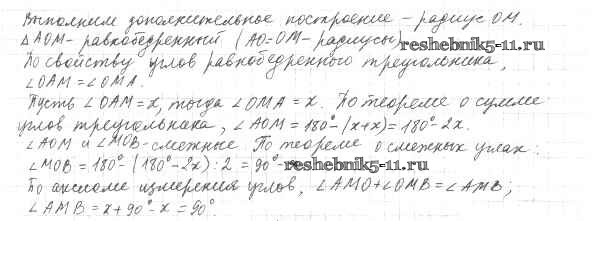 Выполним дополнительное построение – радиус OM.
△AOM – равнобедренный (AO=OM – радиусы) reshebnik5-11.ru
По свойству углов равнобедренного треугольника,
∠OAM=∠OMA.
Пусть ∠OAM=x, тогда ∠OMA = x. По теореме о сумме
углов треугольника, ∠AOM = 180° – (x+x) = 180° – 2x.
∠AOM и ∠MOB – смежные. По теореме о смежных углах:
∠MOB = 180° – (180° – 2x) : 2 = 90° – reshebnik5-11.ru
По аксиоме измерения углов, ∠AMO + ∠OMB = ∠AMB;
∠AMB = x + 90° – x = 90°.